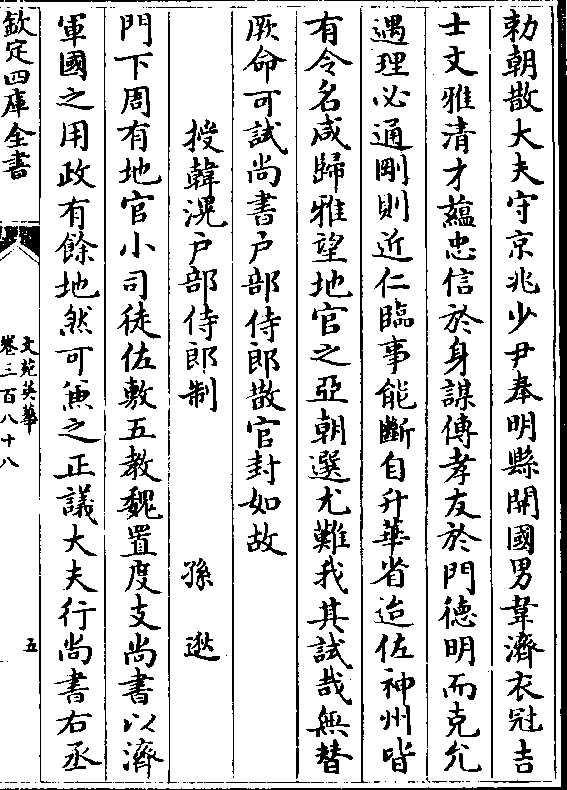 勅朝散大夫守京兆少尹奉明縣開國男韋濟衣冠吉
士文雅清才蘊忠信於身謀傳孝友於門徳明而克允
遇理必通剛則近仁臨事能斷自升華省迨佐神州皆
有令名咸歸雅望地官之亞朝選尤難我其試哉無替
厥命可試尚書户部侍郎散官封如故
授韓滉户部侍郎制 孫逖
門下周有地官小司徒佐敷五教魏置度支尚書以濟
軍國之用政有餘地然可兼之正議大夫行尚書右丞
欽定四庫全書
文苑英華
卷三百八十八
五